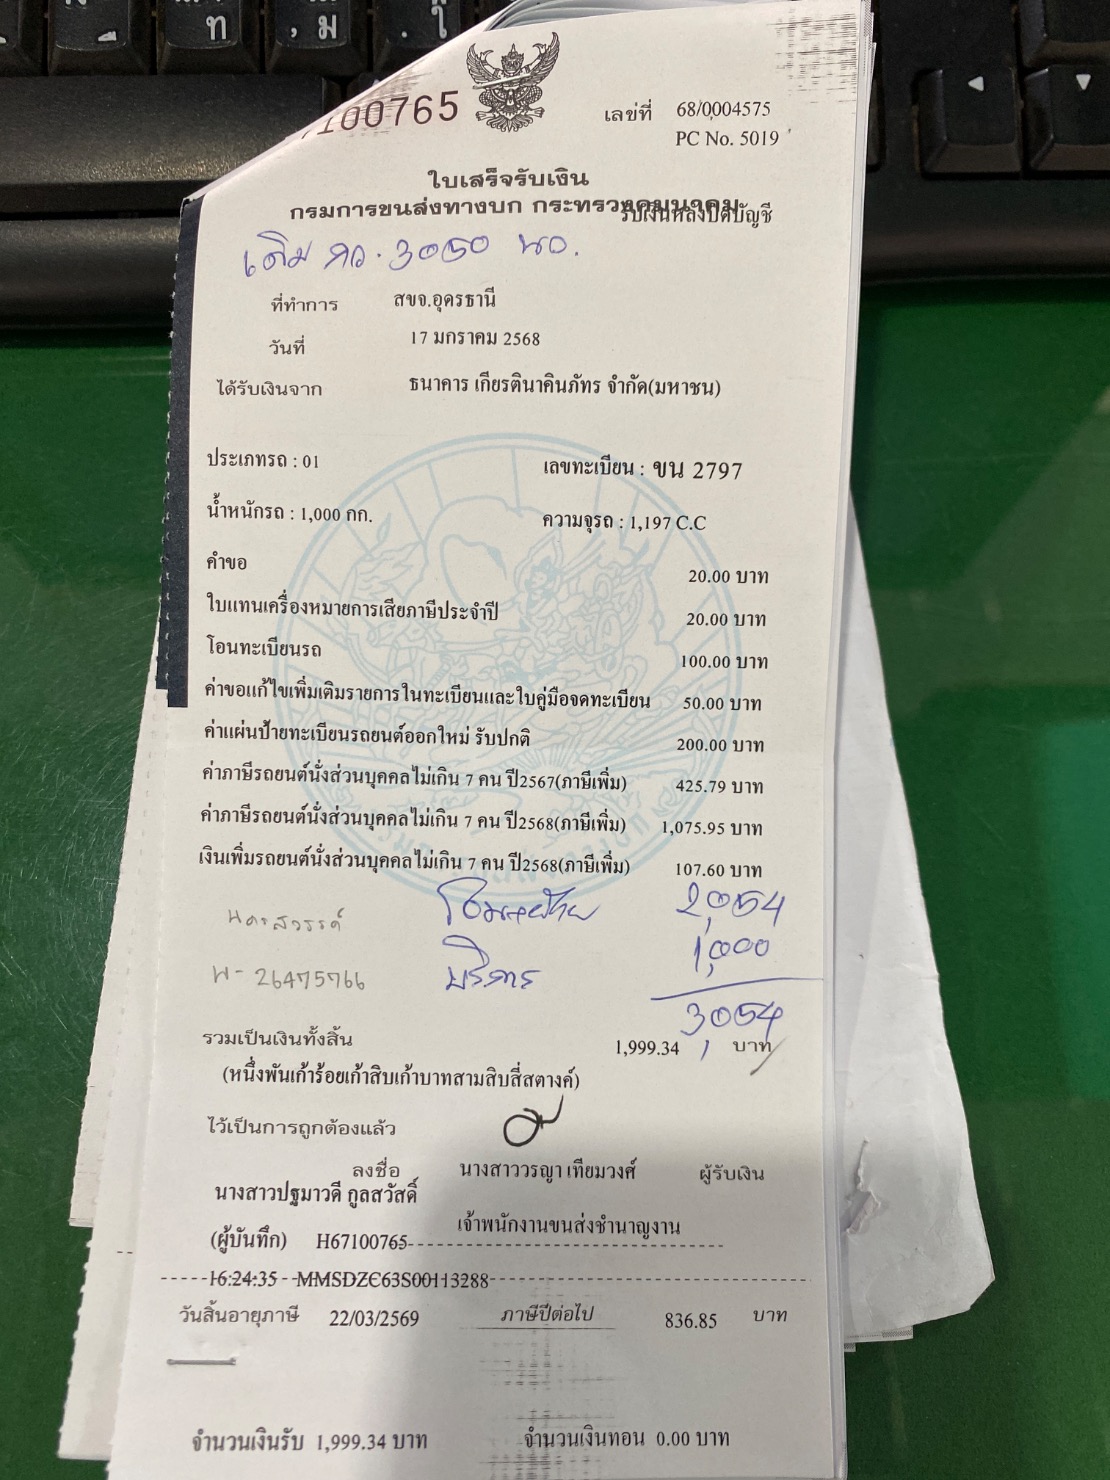 100765
เลขที่ 68/0004575
PC No. 5019
ใบเสร็จรับเงิน
กรมการขนส่งทางบก กระทรวงคมนาคม
รับเงินหลังปิดบัญชี
เดิม กว. 3050 นว.
ที่ทำการ สขจ.อุดรธานี
วันที่ 17 มกราคม 2568
ได้รับเงินจาก ธนาคาร เกียรตินาคินภัทร จำกัด(มหาชน)
ประเภทรถ : 01 เลขทะเบียน : ขน 2797
น้ำหนักรถ : 1,000 กก. ความจุรถ : 1,197 C.C
คำขอ 20.00 บาท
ใบแทนเครื่องหมายการเสียภาษีประจำปี 20.00 บาท
โอนทะเบียนรถ 100.00 บาท
ค่าขอแก้ไขเพิ่มเติมรายการในทะเบียนและใบคู่มือจดทะเบียน 50.00 บาท
ค่าแผ่นป้ายทะเบียนรถยนต์ออกใหม่ รับปกติ 200.00 บาท
ค่าภาษีรถยนต์นั่งส่วนบุคคลไม่เกิน 7 คน ปี2567(ภาษีเพิ่ม) 425.79 บาท
ค่าภาษีรถยนต์นั่งส่วนบุคคลไม่เกิน 7 คน ปี2568(ภาษีเพิ่ม) 1,075.95 บาท
เงินเพิ่มรถยนต์นั่งส่วนบุคคลไม่เกิน 7 คน ปี2568(ภาษีเพิ่ม) 107.60 บาท
นครสวรรค์ 2,054
บริการ 1,000
พ- 26475766
3,054
รวมเป็นเงินทั้งสิ้น 1,999.34 บาท
(หนึ่งพันเก้าร้อยเก้าสิบเก้าบาทสามสิบสี่สตางค์)
ไว้เป็นการถูกต้องแล้ว
ลงชื่อ นางสาววรญา เทียมวงศ์ ผู้รับเงิน
นางสาวปฐมาวดี กูลสวัสดิ์
เจ้าพนักงานขนส่งชำนาญงาน
(ผู้บันทึก) H67100765
16:24:35 MMSDZC63S00113288
วันสิ้นอายุภาษี 22/03/2569 ภาษีปีต่อไป 836.85 บาท
จำนวนเงินรับ 1,999.34 บาท จำนวนเงินทอน 0.00 บาท